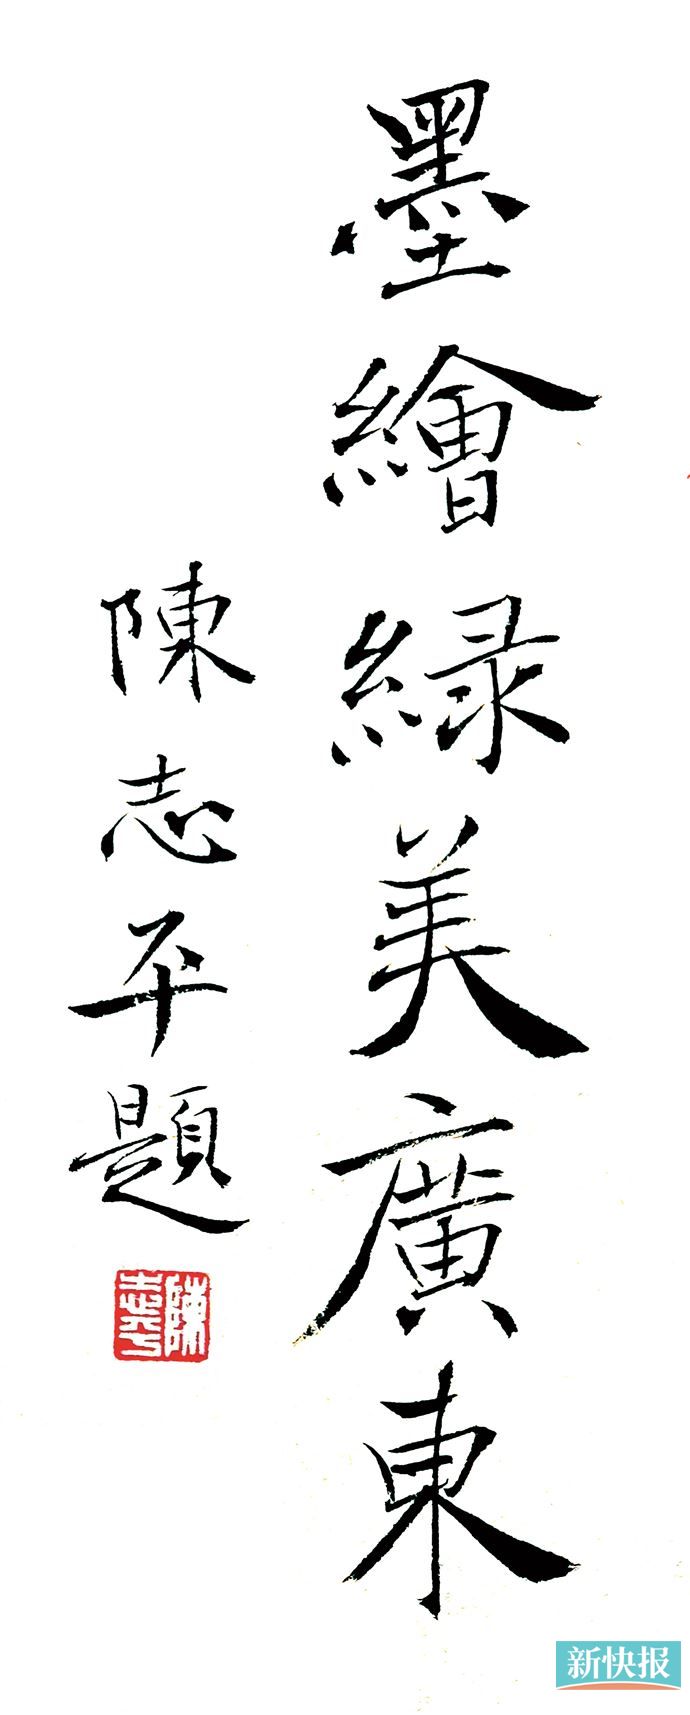 墨繪緑美廣東
陳志平題
陳志平
新快报